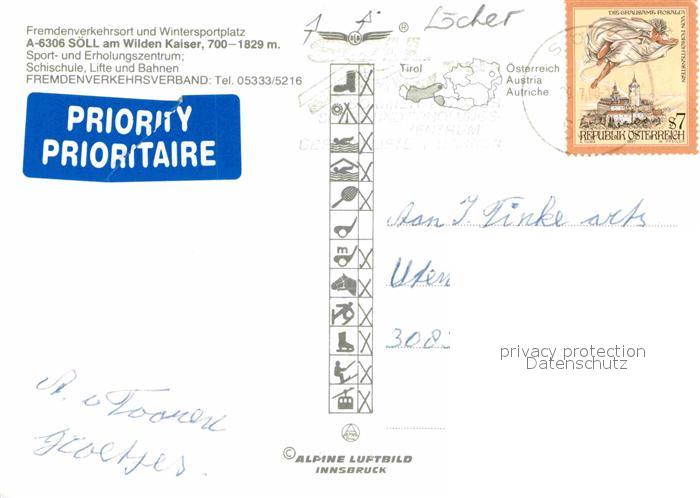 Fremdenverkehrsort und Wintersportplatz
A-6306 SÖLL am Wilden Kaiser, 700–1829 m.
Sport- und Erholungszentrum;
Schischule, Lifte und Bahnen
FREMDENVERKEHRSVERBAND: Tel. 05333/5216
PRIORITY
PRIORITAIRE
®
Löcher
Tirol
Österreich
Austria
Autriche
DIE GRAUSAME ROSALIA
VON FORCHTENSTEIN
S7
REPUBLIK ÖSTERREICH
m
Aan J. Tinke arts
Uten
308
privacy protection
Datenschutz
A. v Tooren
Groetjes.
© ALPINE LUFTBILD
INNSBRUCK